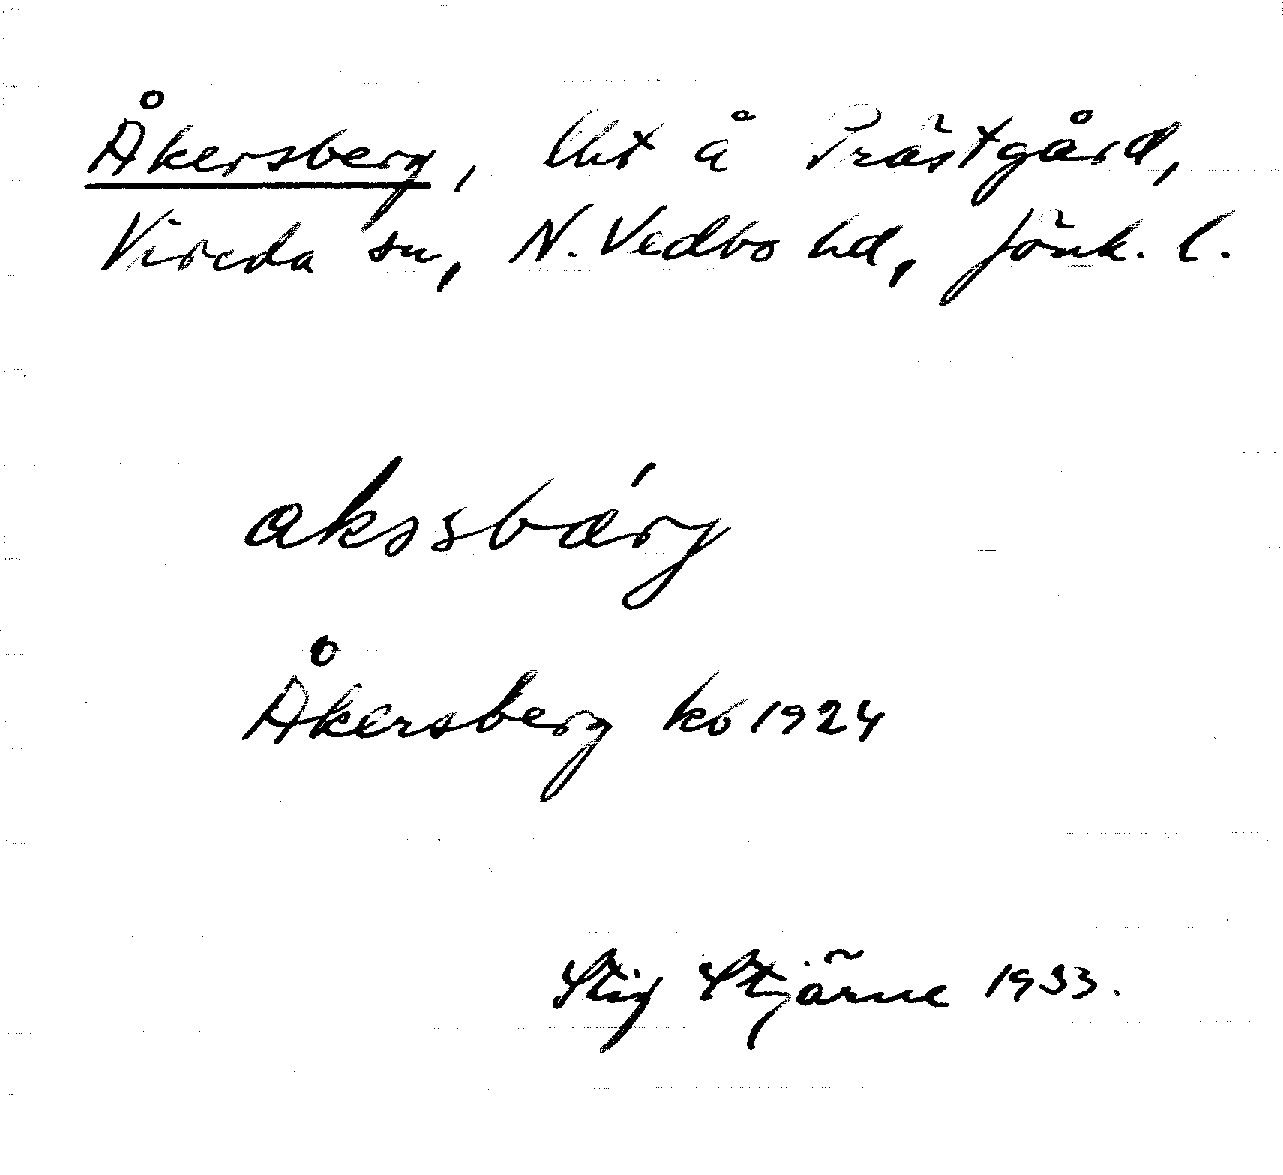 Åkersberg, lht å Prästgård,
Vireda sn, N. Vedbo hd, Jönk. l.
akssbærj
Åkersberg kb 1924
Stig Stjärne 1933.